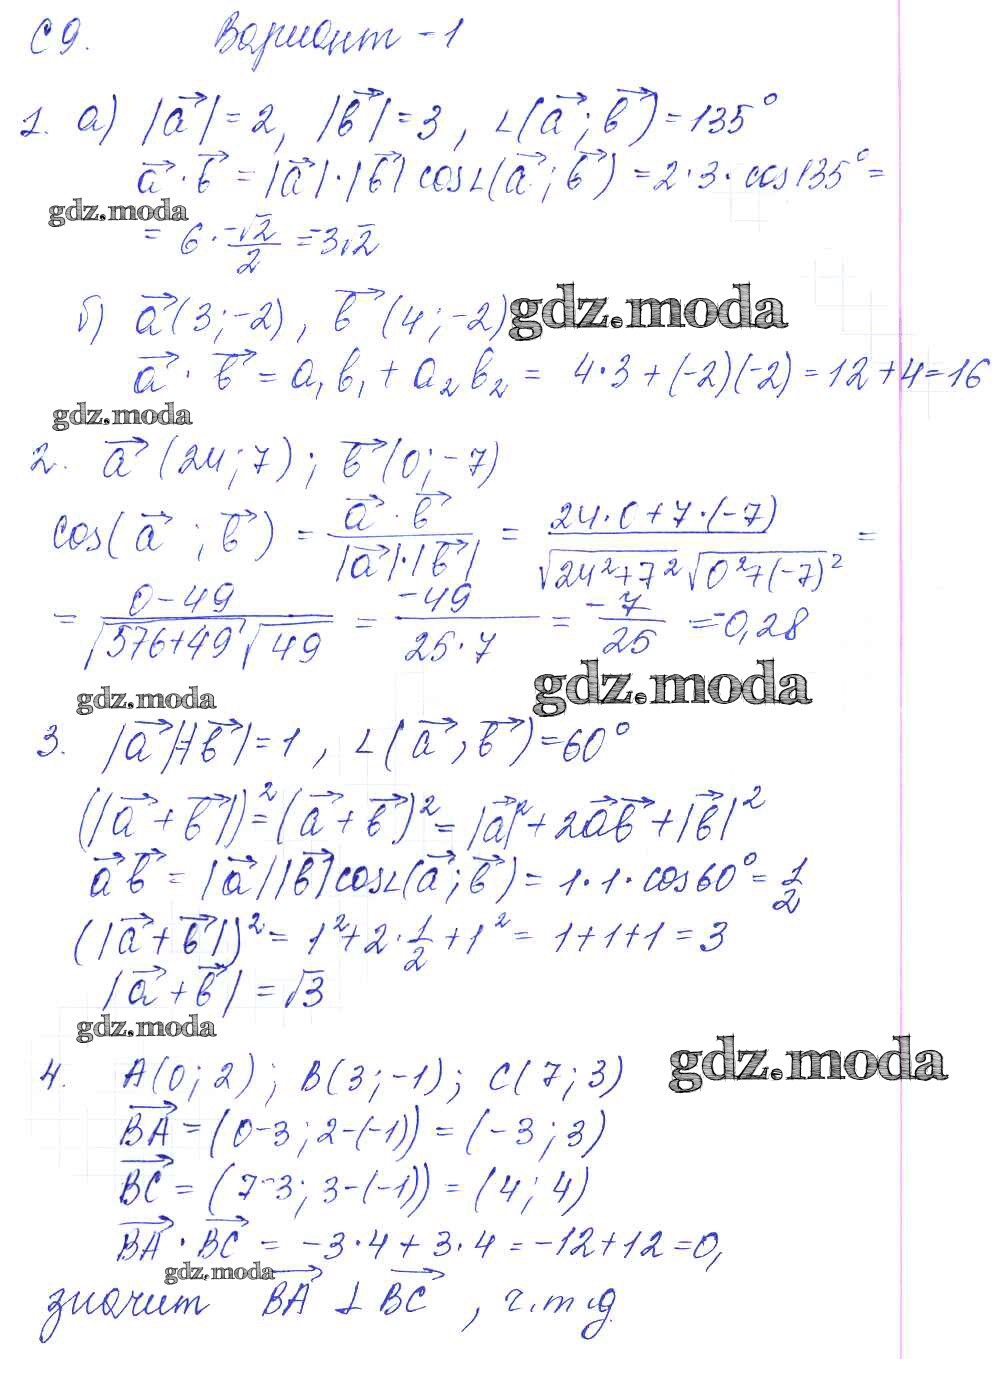 С 9. Вариант - 1
1. а) |a⃗| = 2, |b⃗| = 3, ∠(a⃗; b⃗) = 135°
a⃗ · b⃗ = |a⃗| · |b⃗| cos∠(a⃗; b⃗) = 2 · 3 · cos135° =
gdz.moda
= 6 · -√2/2 = -3√2
б) a⃗(3; -2), b⃗(4; -2)
gdz.moda
a⃗ · b⃗ = a₁b₁ + a₂b₂ = 4·3 + (-2)(-2) = 12 + 4 = 16
gdz.moda
2. a⃗(24; 7); b⃗(0; -7)
cos(a⃗; b⃗) = a⃗ · b⃗ / |a⃗|·|b⃗| = 24·0 + 7·(-7) / √24² + 7² √0² + (-7)² =
= 0 - 49 / √576 + 49 √49 = -49 / 25·7 = -7/25 = -0,28
gdz.moda
gdz.moda
3. |a⃗| = |b⃗| = 1, ∠(a⃗, b⃗) = 60°
(|a⃗ + b⃗|)² = (a⃗ + b⃗)² = |a⃗|² + 2a⃗b⃗ + |b⃗|²
a⃗b⃗ = |a⃗||b⃗|cos∠(a⃗; b⃗) = 1·1·cos60° = 1/2
(|a⃗ + b⃗|)² = 1² + 2·1/2 + 1² = 1+1+1 = 3
|a⃗ + b⃗| = √3
gdz.moda
gdz.moda
4. A(0; 2); B(3; -1); C(7; 3)
BA⃗ = (0-3; 2-(-1)) = (-3; 3)
BC⃗ = (7-3; 3-(-1)) = (4; 4)
BA⃗ · BC⃗ = -3·4 + 3·4 = -12+12 = 0,
gdz.moda
значит BA⃗ ⊥ BC⃗, ч.т.д